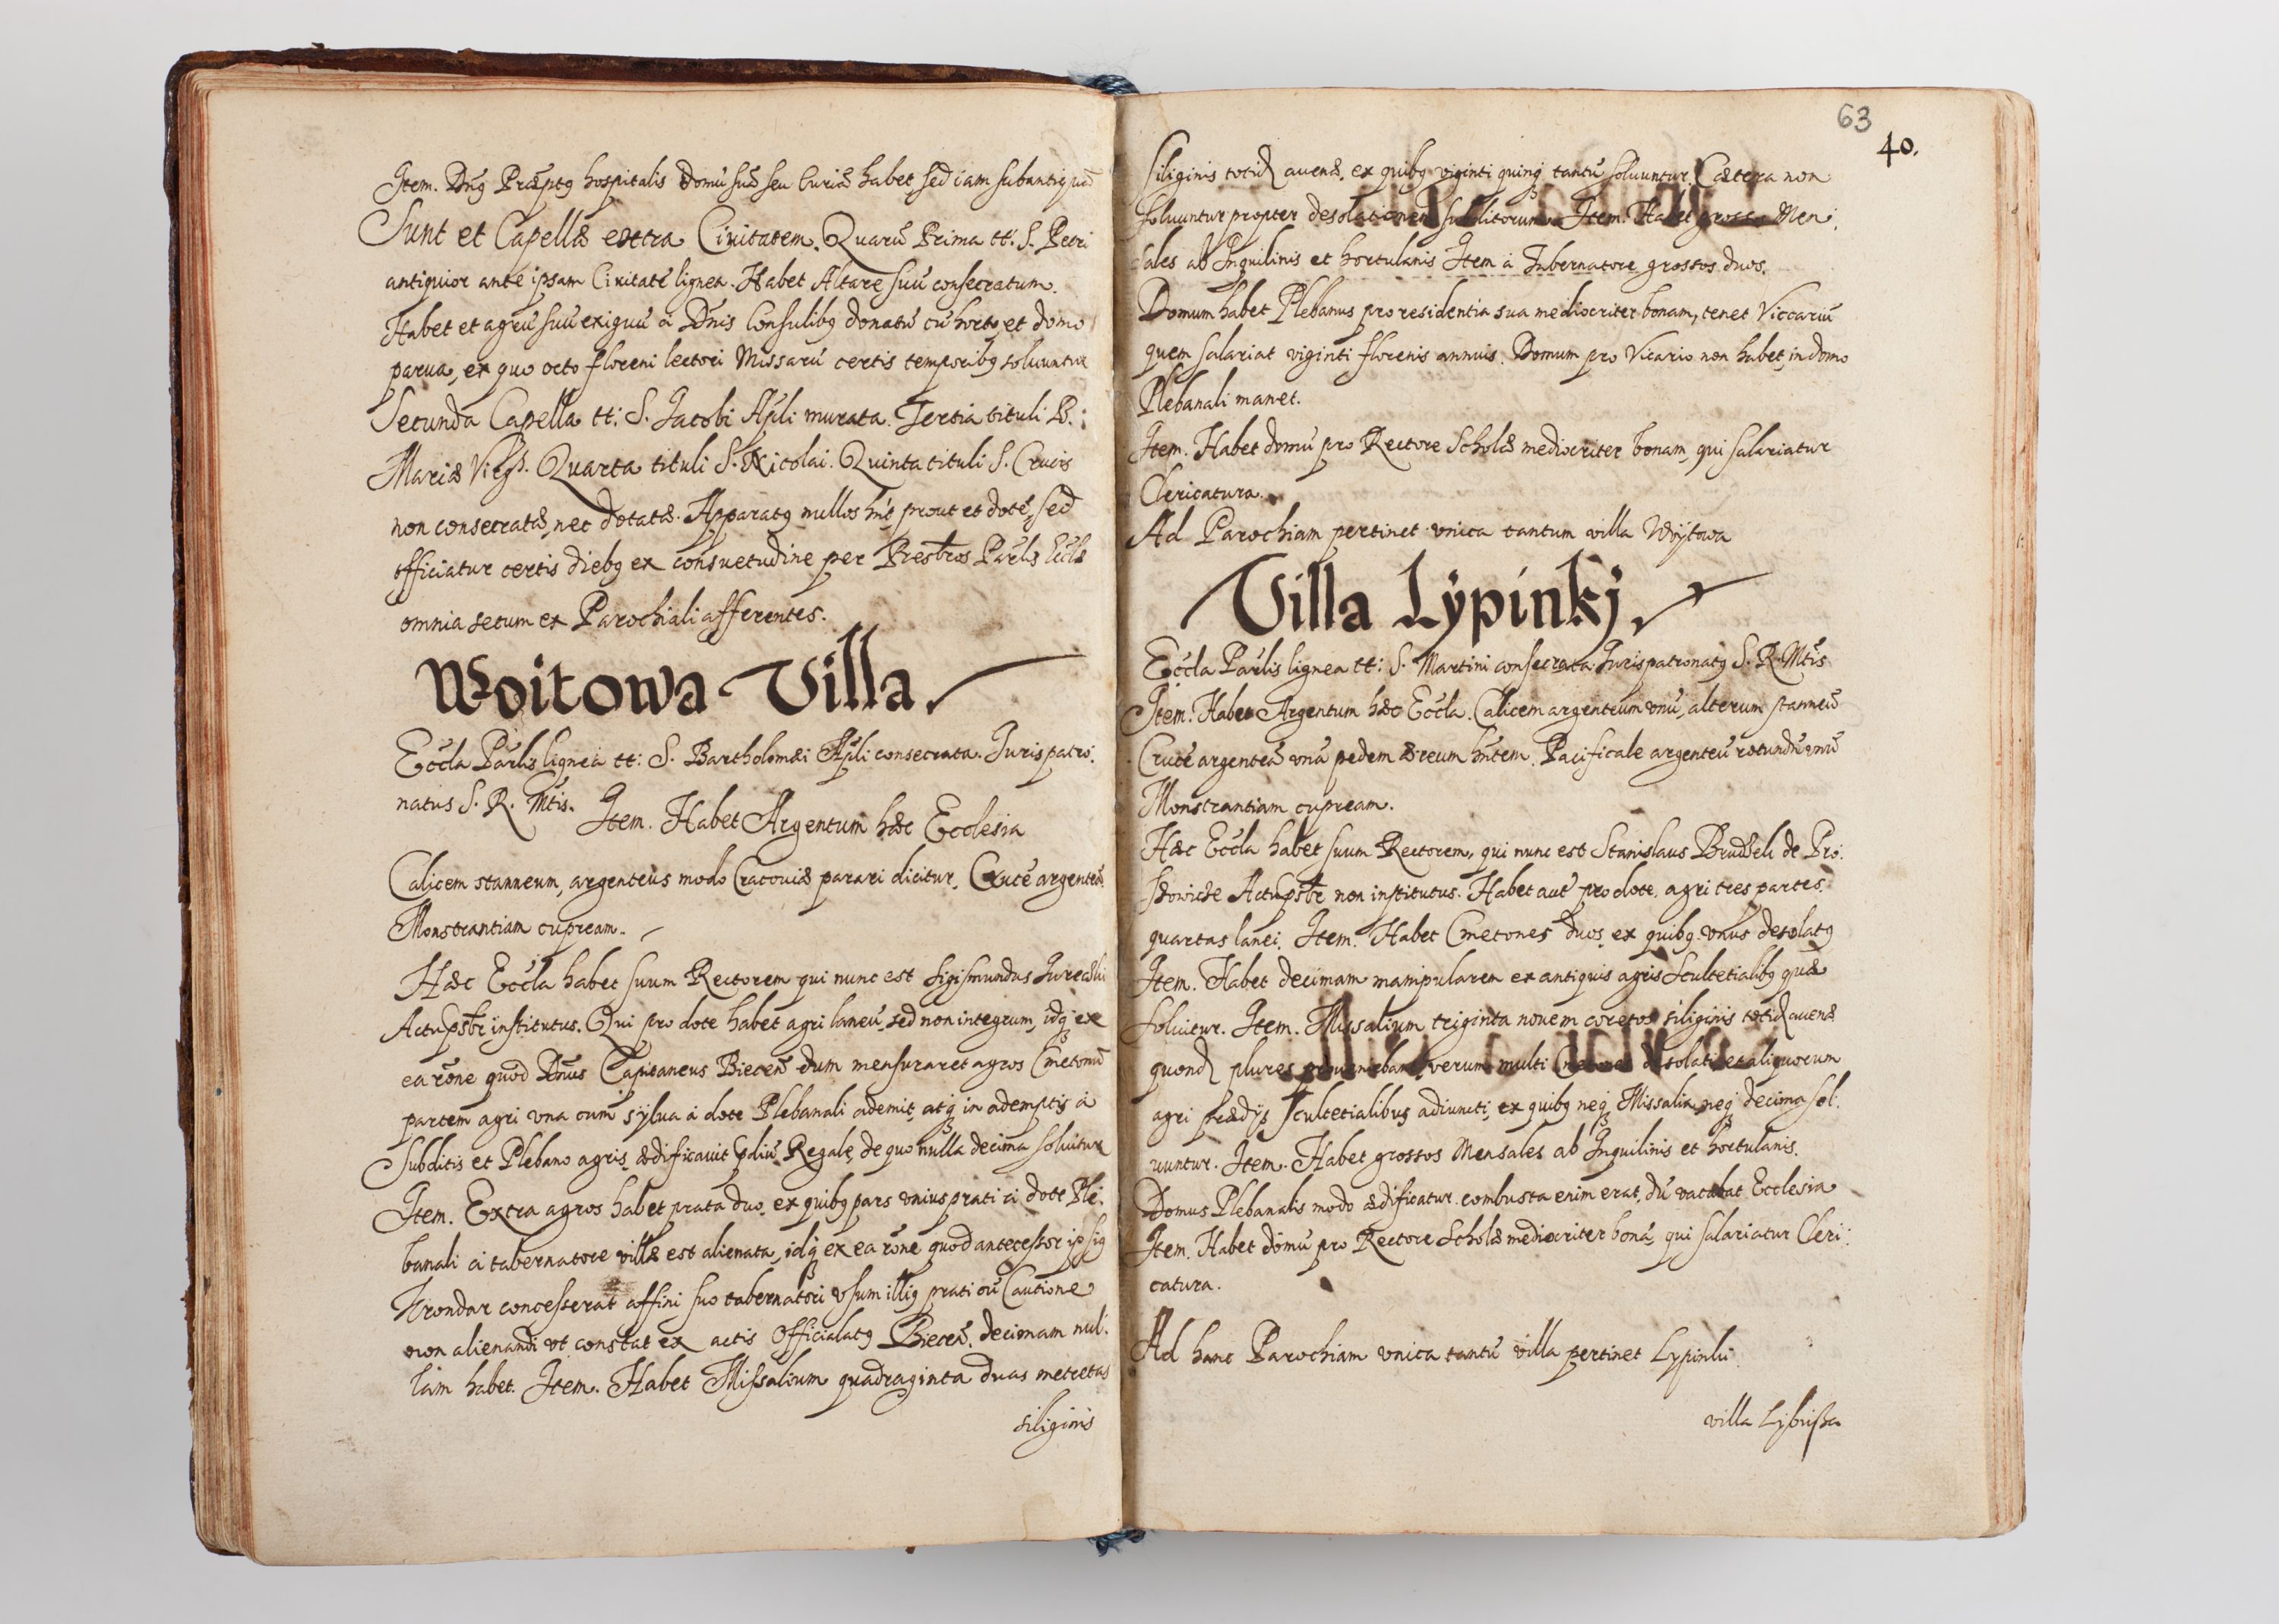 Item. Dn9 Præpt9 hospitalis domũ suã seu Curiã habet, sed iam subantiquã
Sunt et Capellæ extra Civitatem. Quarũ Prima tt: S. Petri
antiquior ante ipsam Civitatẽ lignea. Habet Altare suũ consecratum.
Habet et agrũ suũ exiguũ à Dnis Consulib9 donatũ cũ horto et domo
parua, ex quo octo floreni lectori Missarũ certis temporib9 soluuntur
Secunda Capella tt: S. Jacobi Apli murata. Tertia tituli B:
Mariæ Virg. Quarta tituli S. Nicolai. Quinta tituli S. Crucis
non consecratæ, nec dotatæ. Apparat9 nullos hñt, prout et dotẽ, sed
officiatur certis dieb9 ex consuetudine per Presbros Parlis Eccłæ
omnia secum ex Parochiali afferentes.
Woitowa Villa
Eccla Parlis lignea tt: S. Bartholomæi Apli consecrata. Juris patro:
natus S. R. Mtis. Item. Habet Argentum hæc Ecclesia
Calicem stanneum, argenteus modo Cracouiæ parari dicitur, Crucẽ argenteã
Monstrantiam cupream.
Hæc Eccla habet suum Rectorem qui nunc est Sigismundus
Actu psbr institutus. Qui pro dote habet agri laneũ, sed non integrum, idq3 ex
ea rõne quod Dnus Capitaneus Biecen̄ dum mensuraret agros Cmetonũ
partem agri vna cum sylua à dote Plebanali ademit, atq3 in ademptis à
Subditis et Plebano agris ædificauit pdiũ Regale, de quo nulla decima soluitur
Item. Extra agros habet prata duo, ex quib9 pars vnius prati à dote Ple:
banali à tabernatore villæ est alienata, idq3 ex ea rõne quod antecessor ipsi9
concesserat affini suo tabernatori vsum illi9 prati cũ Cautione
non alienandi vt constat ex actis Officialat9 Biecen̄. decimam nul:
lam habet. Item. Habet Missalium quadraginta duas metretas
siliginis
63
40.
Siliginis totid auenæ, ex quib9 viginti quinq3 tantũ soluuntur. Cætera non
soluuntur propter desolationem subditorum. Item. Habet grossos Men:
sales ab Inquilinis et hortulanis Item à Tabernatore grossos duos.
Domum habet Plebanus pro residentia sua mediocriter bonam, tenet Viccariũ
quem salariat viginti florenis annuis. Domum pro Vicario non habet, in domo
Plebanali manet.
Item. Habet domũ pro Rectore Scholæ mediocriter bonam, qui salariatur
Clericatura.
Ad Parochiam pertinet vnica tantum villa Wÿtowa
Villa Lÿpinkj
Eccla Parlis lignea tt: S. Martini consecrata Juris patronat9 S. R. Mtis
Item. Habet Argentum hæc Eccla. Calicem argenteum vnũ, alterum stanneũ
Crucẽ argenteã vnã pedem æreum hñtem. Pacificale argenteũ rotundũ vnũ
Monstrantiam cupream.
Hæc Eccla habet suum Rectorem, qui nunc est Stanislaus de Pro:
Actu psbr non institutus. Habet autẽ pro dote agri tres partes
quartas lanei. Item. Habet Cmetones duos, ex quib9 vnus desolat9
Item. Habet decimam manipularem ex antiquis agris Scultetialib9 quæ
soluitur. Item. Missalium triginta nouem coretos siliginis totid auenæ
quond plures proueniebant, verum multi Cmetones desolati et aliquorum
agri prædijs Scultetialibus adiuncti, ex quib9 neq3 Missalia neq3 decima sol:
uuntur. Item. Habet grossos Mensales ab Inquilinis et hortulanis.
Domus Plebanalis modo ædificatur. combusta enim erat, dũ vacabat Ecclesia
Item. Habet domũ pro Rectore Scholæ mediocriter bonã, qui salariatur Cleri:
catura.
Ad hanc Parochiam vnica tantũ villa pertinet Lypinki
villa